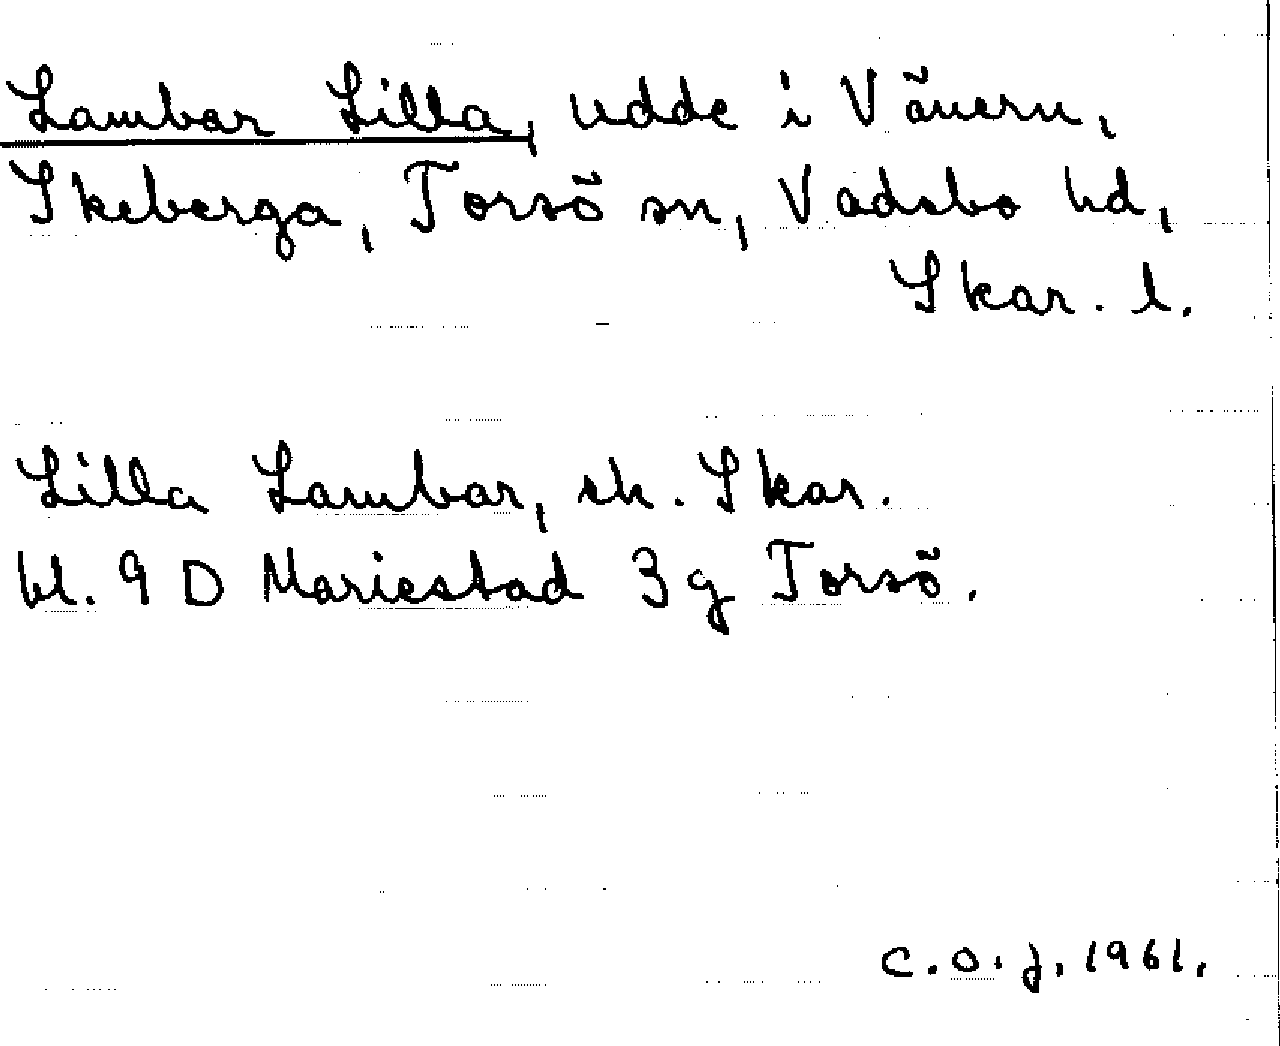 Lambar Lilla, udde i Vänern,
Skeberga, Torsö sn, Vadsbo hd,
Skar. l.
Lilla Lambar, ek. Skar.
bl. 9 D Mariestad 3g Torsö.
C.O.J. 1961.